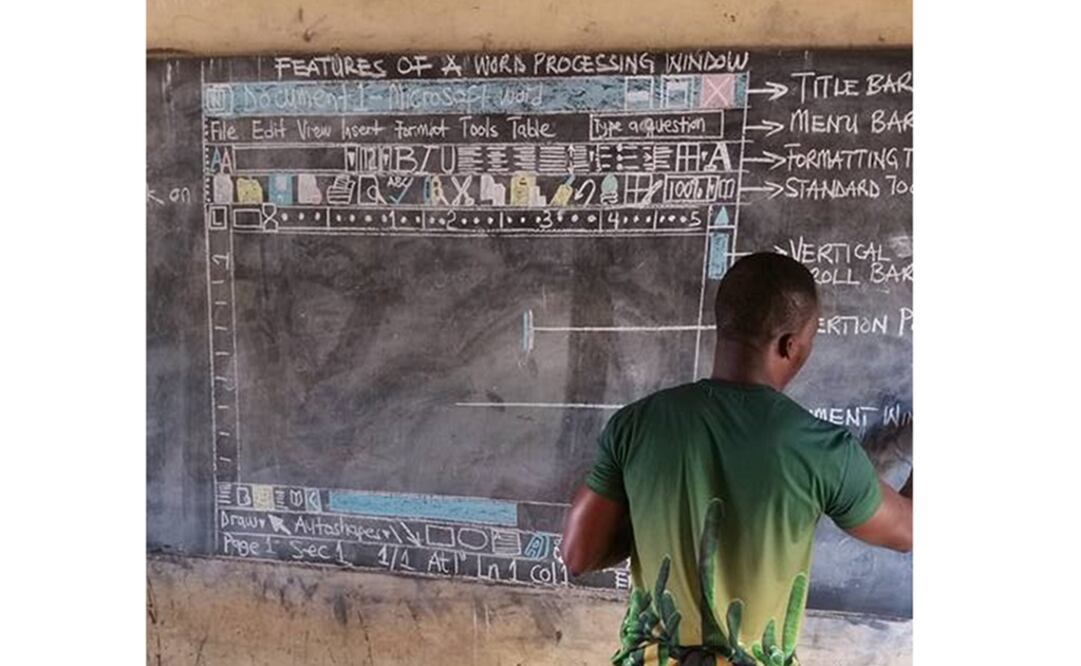 FEATURES OF A WORD PROCESSING WINDOW
Document 1 - Microsoft Word
TITLE BAR
File Edit View Insert Format Tools Table Type a question
MENU BAR
12 B I U A
FORMATTING T
ABC 100%
STANDARD TOO
k on
1 2 3 4 5
VERTICAL
ROLL BAR
ERTION P
MENT WIN
Draw Autoshapes
Page 1 Sec 1 1/1 At 1" Ln 1 Col 1